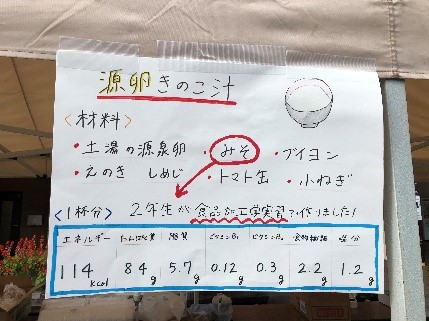 源卵きのこ汁
<材料>
・土湯の源泉卵 ・みそ ・ブイヨン
・えのき しめじ ・トマト缶 ・小ねぎ
<1杯分> 2年生が食品加工学実習で作りました!
エネルギー たんぱく質 脂質 ビタミンB₁ ビタミンB₂ 食物繊維 塩分
114kcal 8.4g 5.7g 0.12g 0.3g 2.2g 1.2g